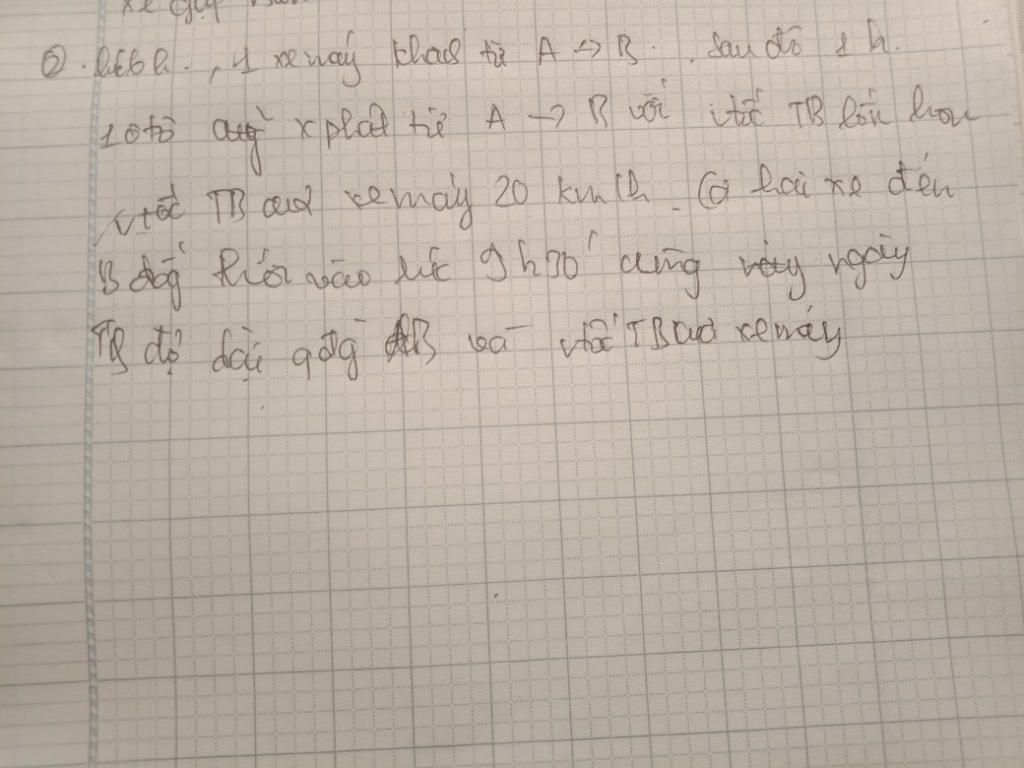 xe gặp
②. Lúc 6 h. , 1 xe máy khởi từ A -> B. Sau đó 1 h.
1 ô tô cũng x phát từ A -> B với vtốc TB lớn hơn
vtốc TB của xe máy 20 km/h. Cả hai xe đến
B đồng thời vào lúc 9h30' cùng ngày
Tính độ dài qđg AB và vtốc TB của xe máy